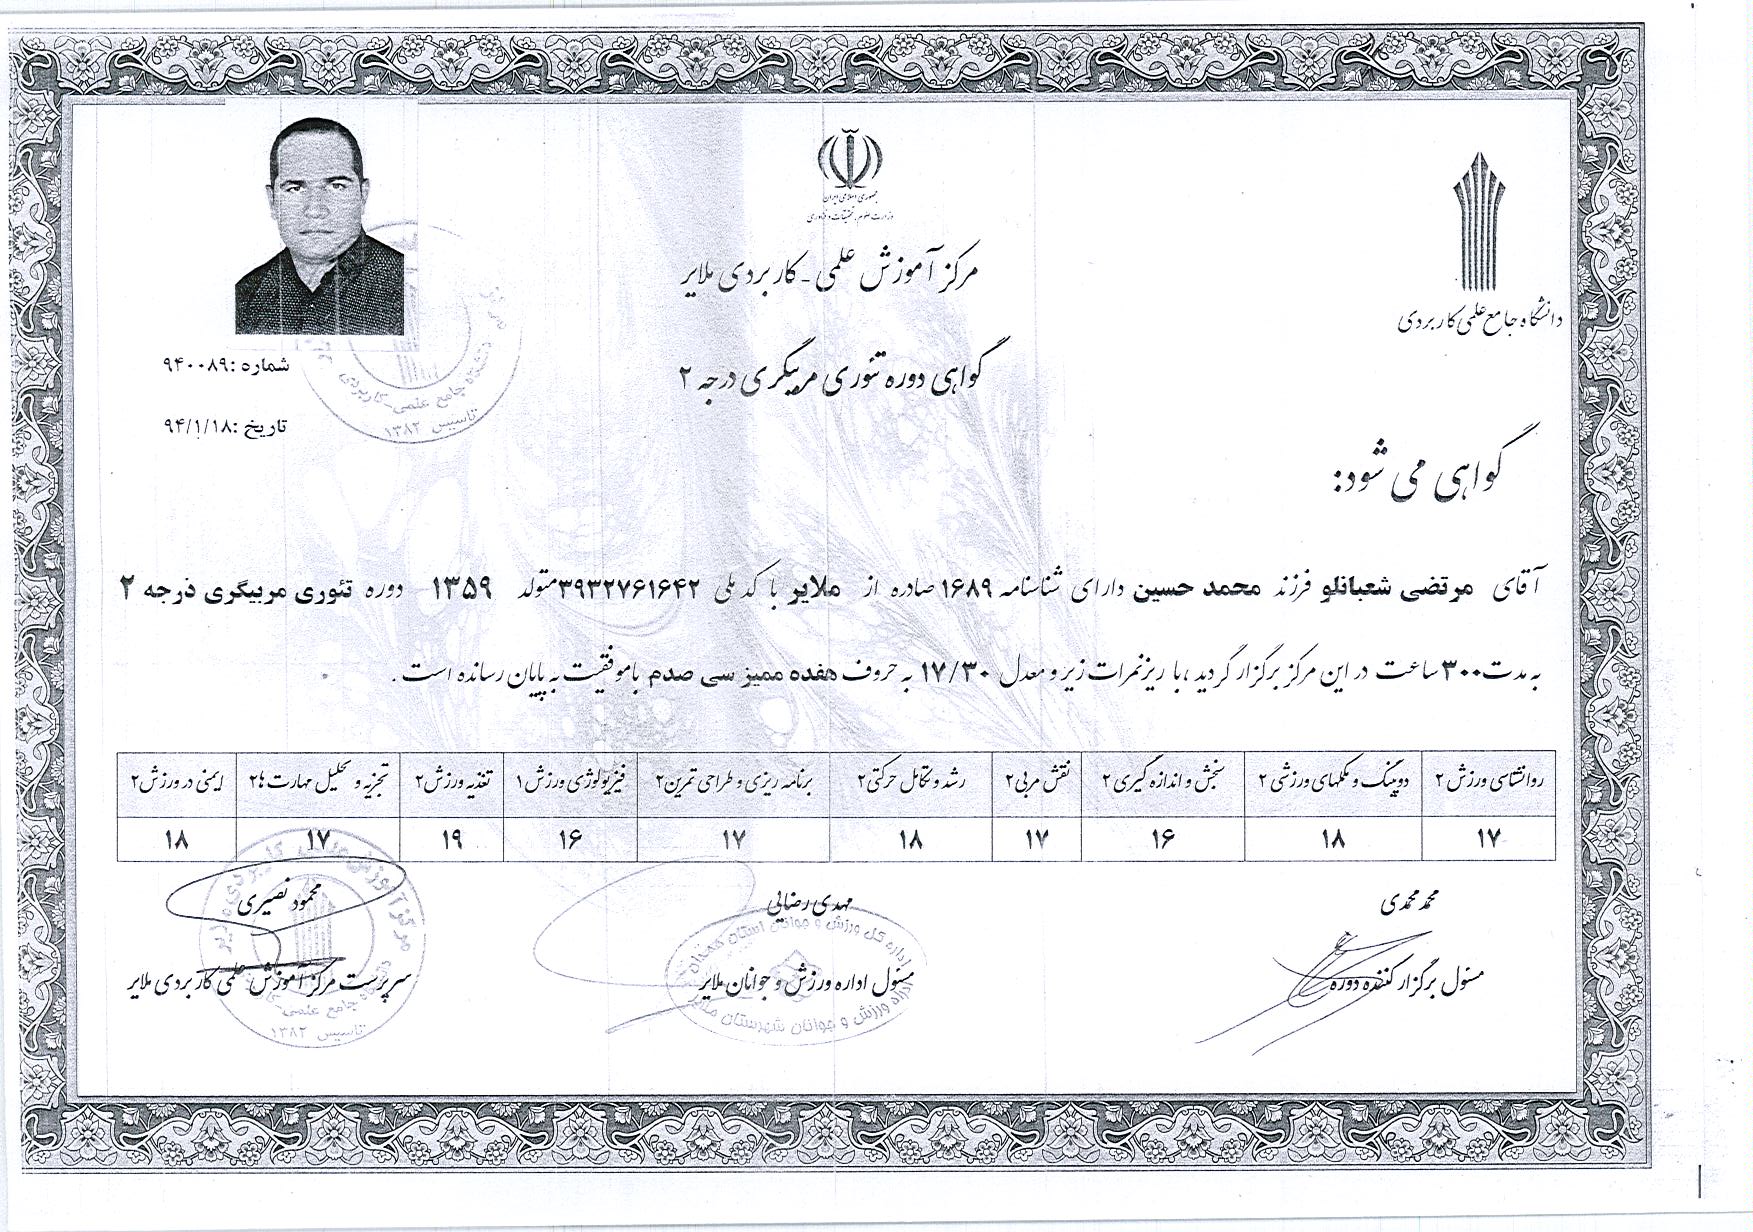 جمهوری اسلامی ایران
وزارت علوم، تحقیقات و فناوری
دانشگاه جامع علمی کاربردی
مرکز آموزش علمی - کاربردی ملایر
گواهی دوره تئوری مربیگری درجه ۲
شماره :۹۴۰۰۸۹
تاریخ :۹۴/۱/۱۸
گواهی می شود:
آقای مرتضی شعبانلو فرزند محمد حسین دارای شناسنامه ۱۶۸۹ صادره از ملایر با کد ملی ۳۹۳۲۷۶۱۶۴۲ متولد ۱۳۵۹ دوره تئوری مربیگری درجه ۲
به مدت ۳۰۰ ساعت در این مرکز برگزار گردید ،با ریزنمرات زیر و معدل ۱۷/۳۰ به حروف هفده ممیز سی صدم باموفقیت به پایان رسانده است .
روانشناسی ورزش ۲ دوپینگ و مکملهای ورزشی ۲ سنجش و اندازه گیری ۲ نقش مربی ۲ رشد و تکامل حرکتی ۲ برنامه ریزی و طراحی تمرین ۲ فیزیولوژی ورزش ۱ تغذیه ورزش ۲ تجزیه و تحلیل مهارت ها ۲ ایمنی در ورزش ۲
۱۷ ۱۸ ۱۶ ۱۷ ۱۸ ۱۷ ۱۶ ۱۹ ۱۷ ۱۸
محمد محمدی مهدی رضایی محمود نصیری
مسئول برگزار کننده دوره مسئول اداره ورزش و جوانان ملایر سرپرست مرکز آموزش علمی کاربردی ملایر
دانشگاه جامع علمی-کاربردی
تاسیس ۱۳۸۲
اداره کل ورزش و جوانان استان همدان
اداره ورزش و جوانان شهرستان ملایر
تاسیس ۱۳۸۲